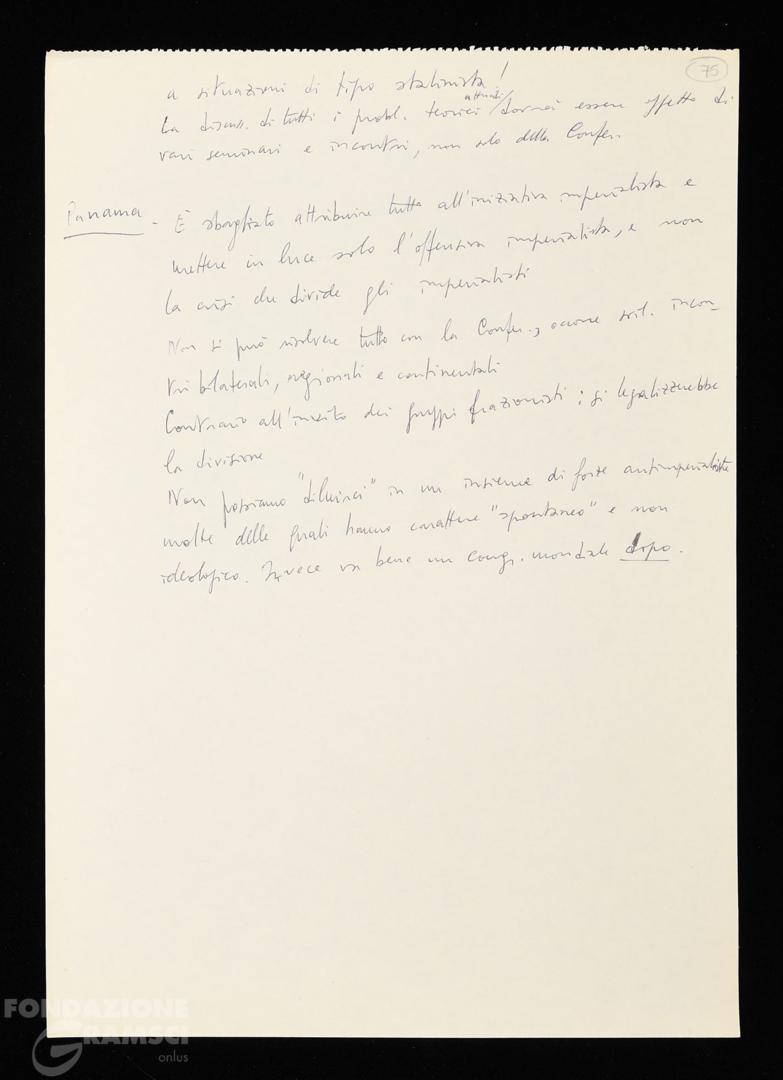 75
a situazioni di tipo stalinista!
La discuss. di tutti i probl. teorici attuali dovrà essere effetto di
vari seminari e incontri, non solo della Confer.
Panama - È sbagliato attribuire tutto all'iniziativa imperialista e
mettere in luce solo l'offensiva imperialista, e non
la crisi che divide gli imperialisti
Non si può risolvere tutto con la Confer., occorre svil. incon-
tri bilaterali, regionali e continentali
Contrario all'invito dei gruppi frazionisti: si legalizzerebbe
la divisione
Non possiamo "diluirci" in un insieme di forze antimperialiste
molte delle quali hanno carattere "spontaneo" e non
ideologico. Invece va bene un congr. mondiale dopo.
FONDAZIONE
GRAMSCI
onlus